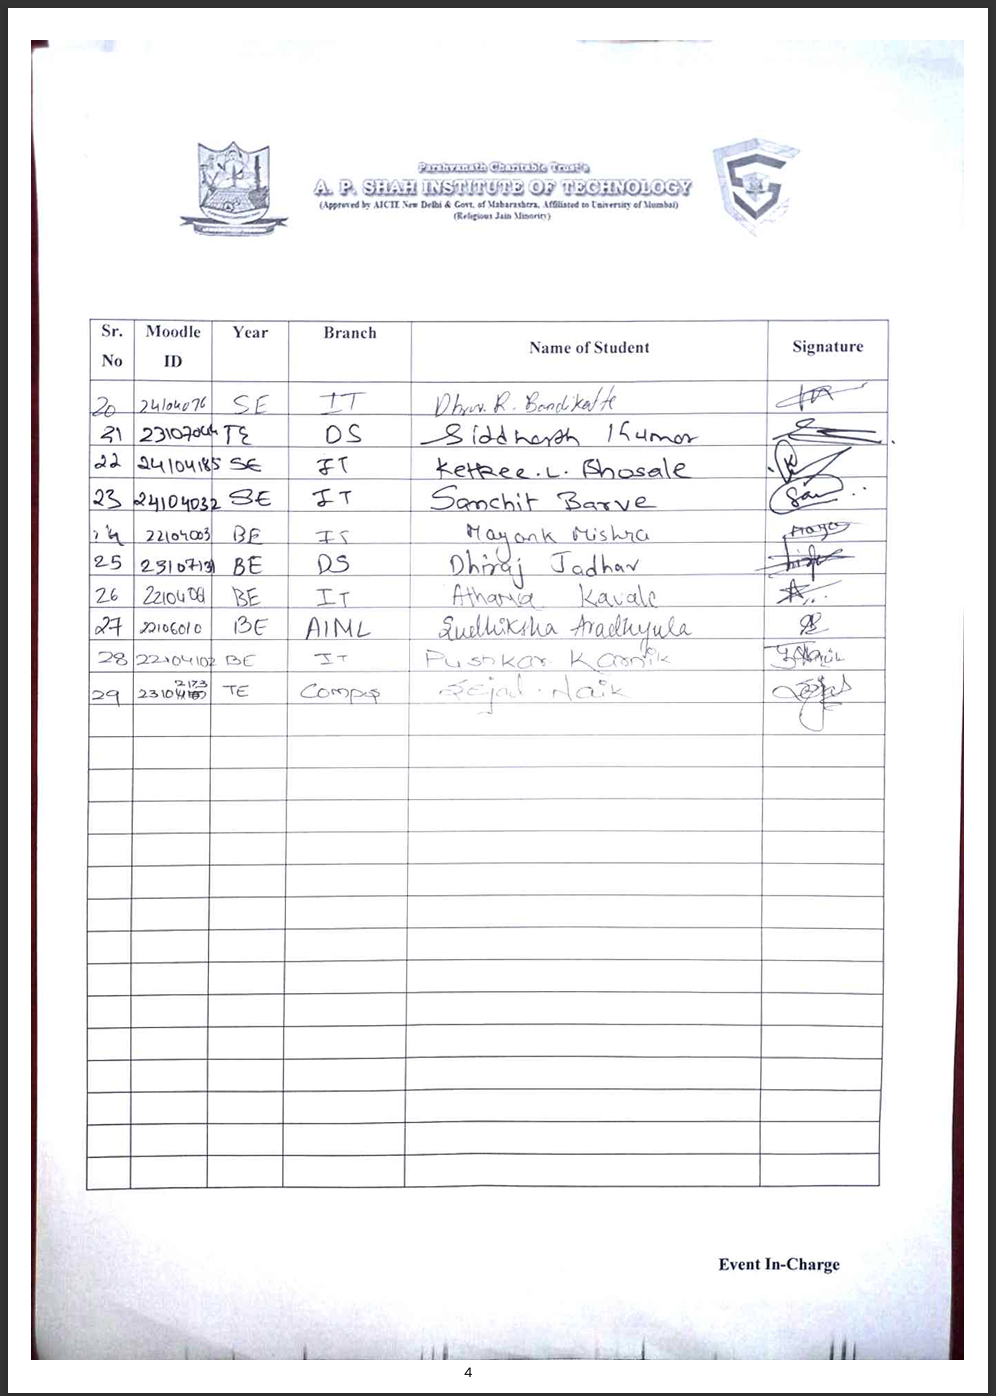 Parshvanath Charitable Trust's
A. P. SHAH INSTITUTE OF TECHNOLOGY
(Approved by AICTE New Delhi & Govt. of Maharashtra, Affiliated to University of Mumbai)
(Religious Jain Minority)
Sr. No Moodle ID Year Branch Name of Student Signature
20 24104076 SE IT R. Bandikatte
21 TE DS Siddharth Kumar
22 24104185 SE IT Ketkee.L. Bhosale
23 24104032 SE IT Sanchit Barve
22104003 BE Mayank Mishra
25 BE DS Dhiraj Jadhav
26 BE IT Atharva Kavale
27 22106010 BE AIML Sudhiksha Aradhyula
28 22104102 BE IT Pushkar Karnik
29 TE Comps Sejal. Naik
Event In-Charge
4